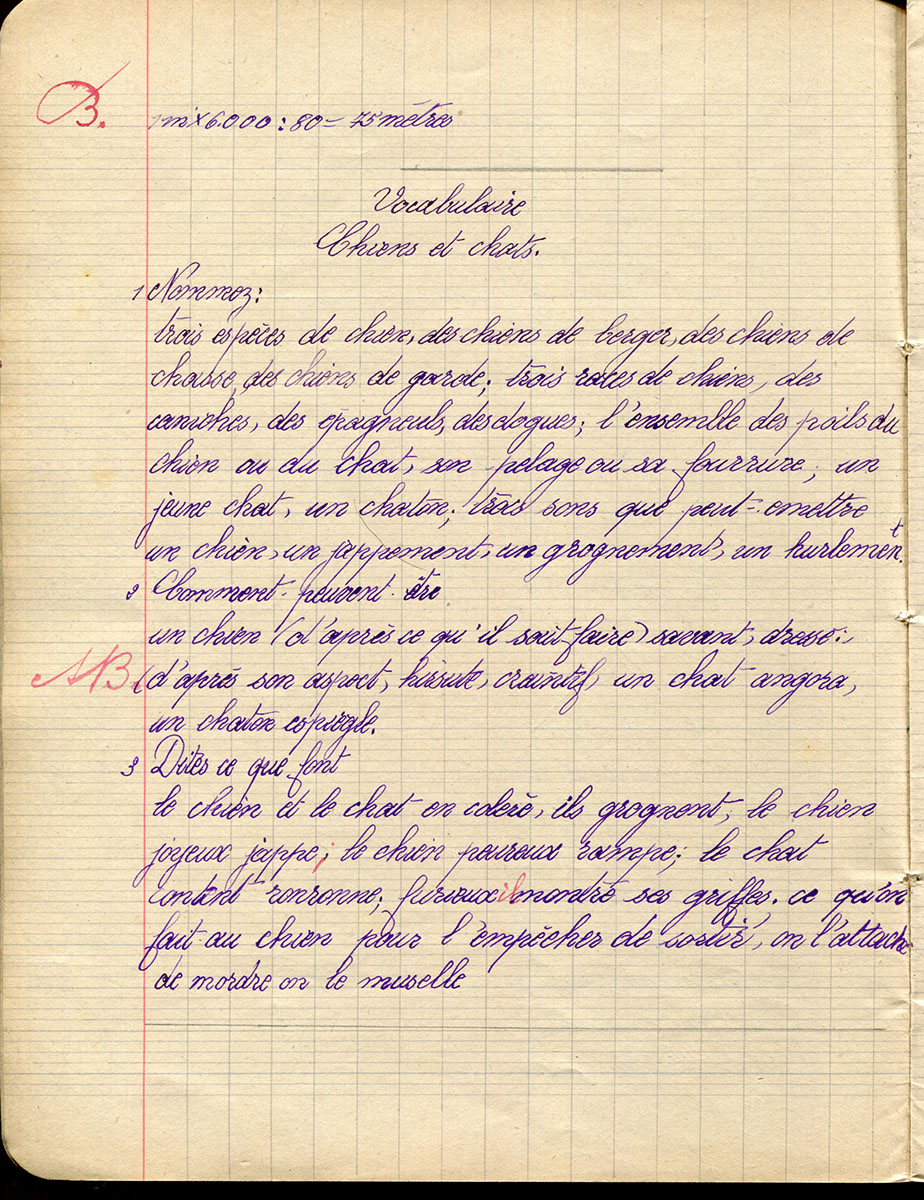 B.
1m x 6.000 : 80 = 75 mètres
Vocabulaire
Chiens et chats.
1 Nommez :
trois espèces de chien, des chiens de berger, des chiens de
chasse, des chiens de garde ; trois races de chiens, des
caniches, des épagneuls, des dogues ; l'ensemble des poils du
chien ou du chat, son pelage ou sa fourrure ; un
jeune chat, un chaton ; trois sons que peut-émettre
un chien, un jappement, un grognement, un hurlement.
2 Comment peuvent être
un chien (d'après ce qu'il sait faire) savant, dressé :
AB. (d'après son aspect, hirsute, craintif, un chat angora,
un chaton espiègle.
3 Dites ce que font
le chien et le chat en colère, ils grognent ; le chien
joyeux jappe ; le chien peureux rampe ; le chat
content ronronne ; furieux il montre ses griffes. ce qu'on
fait au chien pour l'empêcher de sortir, on l'attache
de mordre on le muselle